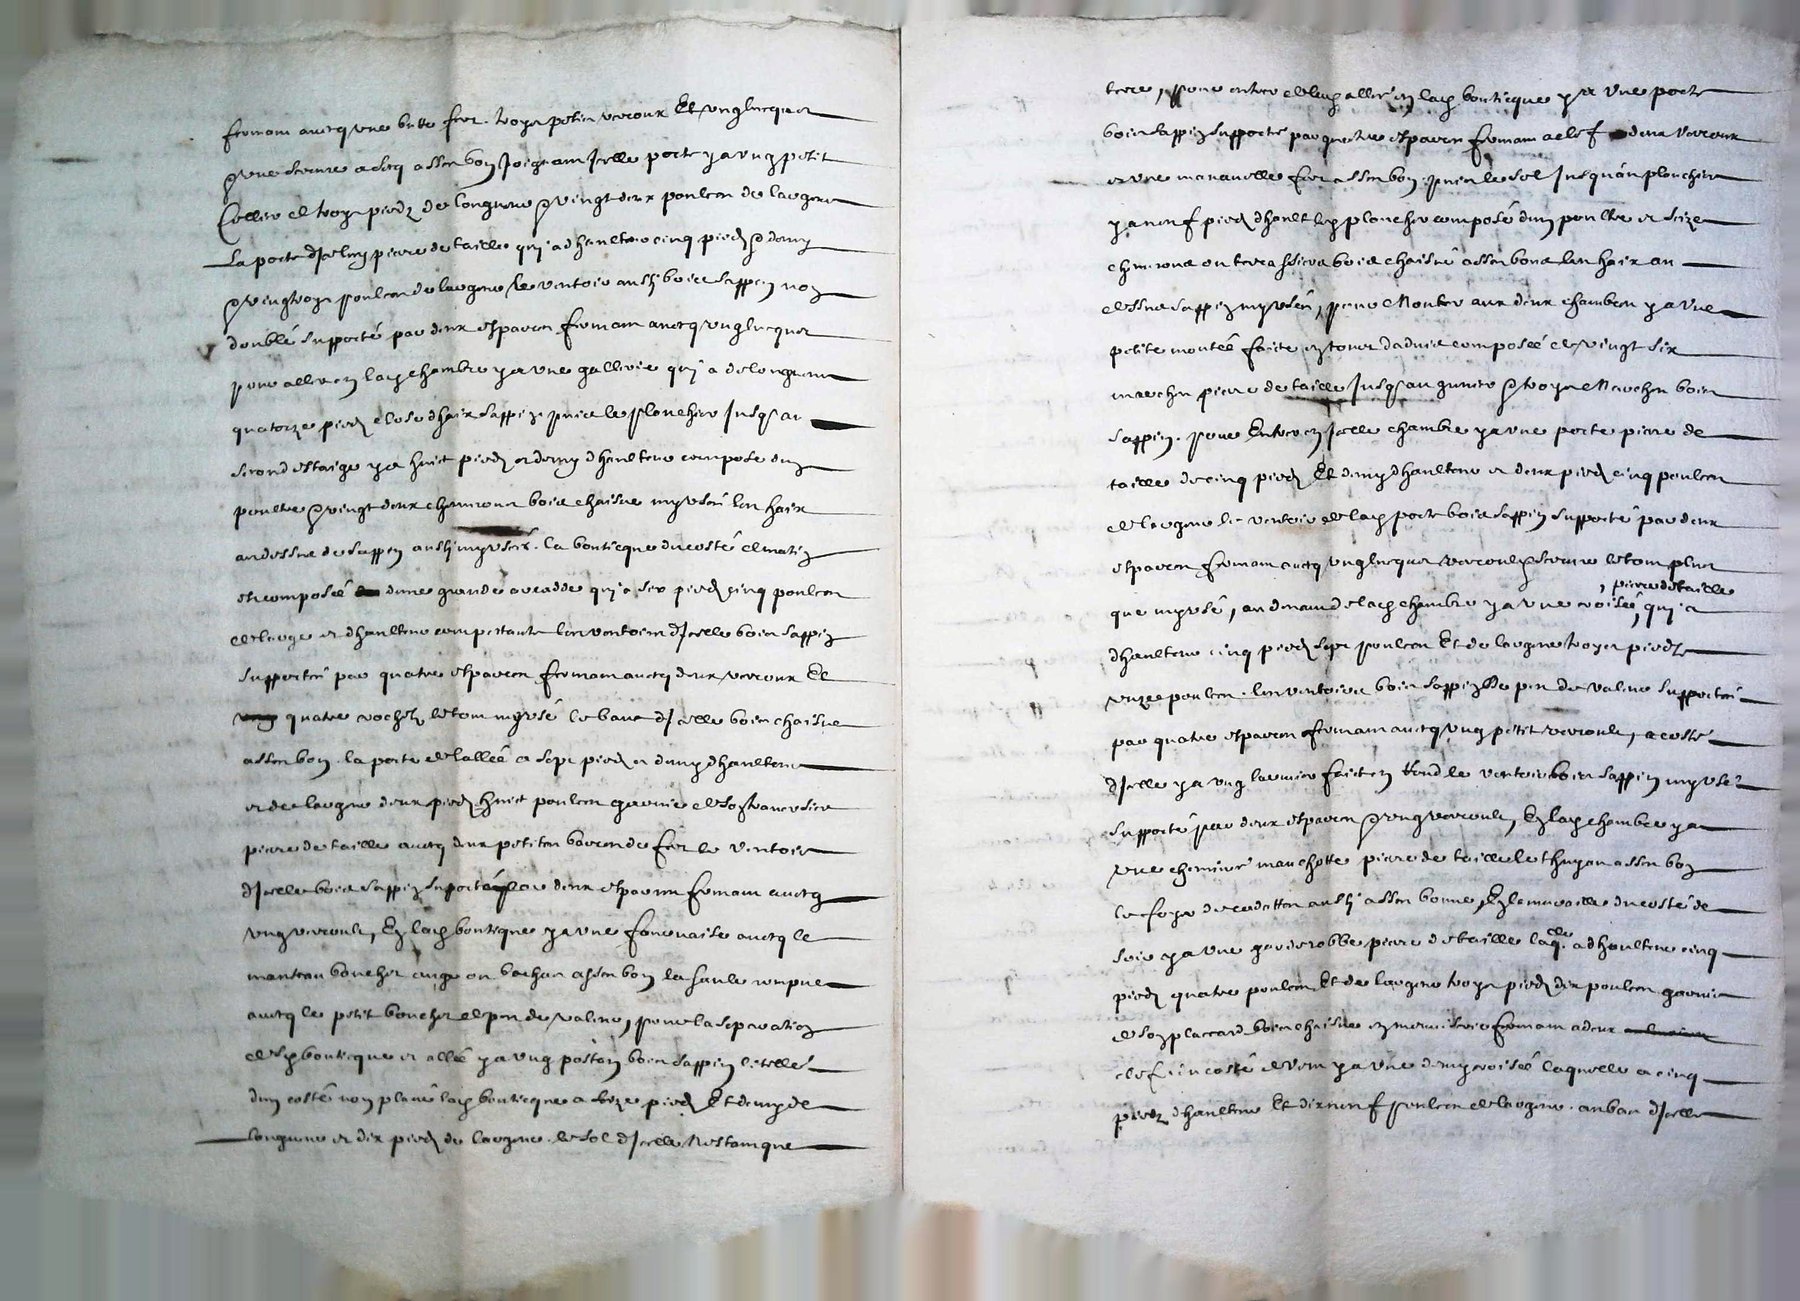 fermant avecq une bitte fer troys petis veroux Et ung lucquet
& une serrure a secq assez bon Joignant Jcelle porte y a ung petit
Cellier de troys piedz de longueur & vingt deux poulces de largeur
La porte dJceluy pierre de taille qui a d haulteur cinq piedz & demy
& vingtroys poulces de largeur le ventoir aussi bois sappin non
doublé supporté par deux esparres fermant avecq ung lucquet
pour aller en lad chambre y a une gallerie qui a de longueur
quatorze piedz close d haix sappin puis le plancher Jusqs au
second estaige y a huict piedz et demy d haulteur composé dun
poultre & vingt deux chevrons bois chaisne my usé les haix
au dessus de sappin aussi my usés. la bouticque du costé de matin
est composée dune grande arcadde qui a six piedz cinq poulces
de large et d haulteur competante les ventoirs dJcelle bois sappin
supportés par quatre esparres fermant avecq deux veroux Et
quatre rochetz le tout my usé le banc dJcelle bois chaisne
assez bon. la porte de lallée a sept piedz et demy d haulteur
et de largeur deux piedz huict poulces garnie de
pierre de taille avecq deux petites barres de fer le ventoir
dJcelle bois sappin suporté par deux esparres fermant avecq
ung verouls, En lad bouticque y a une fournaise avecq le
manteau
avecq le petit de peu de valeur, pour la separation
de lad bouticque et allée y a ung postan bois sappin litellé
dun costé non plané lad bouticque a seze piedz Et demy de
longueur et dix piedz de largeur le sol dJcelle n estant que
terre, pour entrer de lad allée en lad bouticque y a une porte
bois sappin supporté par quatre esparres fermant a clef deux veroux
et une manavelle fer assez bon. puis le sol Jusquau plancher
y a neuf piedz d hault led plancher composé dun poultre et seize
chevrons ou terrassiers bois chaisne assez bons les haix au
dessus sappin my usés, pour Monter aux deux chambres y a une
petite montée faicte en tour composée de vingt six
marches pierre de taille Jusqs au grenier & troys Marches bois
sappin. pour Entrer en Jcelle chambre y a une porte pierre de
taille de cinq piedz Et demy d haulteur et deux piedz cinq poulces
de largeur le ventoir de lad porte bois sappin supporté par deux
esparres fermant avecq ung lucquet verouls & serrure le tout plus
que my usé, au devant de lad chambre y a une croisée, pierre de taille qui a
d haulteur cinq piedz sept poulces Et de largeur troys piedz
unze poulces. les ventoirs bois sappin de peu de valeur supportés
par quatre esparres fermant avecq ung petit verouls, a costé
dJcelle y a ung larmier faict en rond le ventoir bois sappin my usé
supporté par deux esparres & ung verouls, En lad chambre y a
une cheminée pierre de taille le thuyau assez bon
le foyer de cadettes aussi assez bonne, En la muraille du costé de
soir y a une garderobbe pierre de taille laqlle a d haulteur cinq
piedz quatre poulces Et de largeur troys piedz dix poulces garnie
de son placcard bois chaisne en menuiserie fermant a deux
clefs du costé de vent y a une demy croisée laquelle a cinq
piedz d haulteur Et dixneuf poulces de largeur. au bas dJcelle